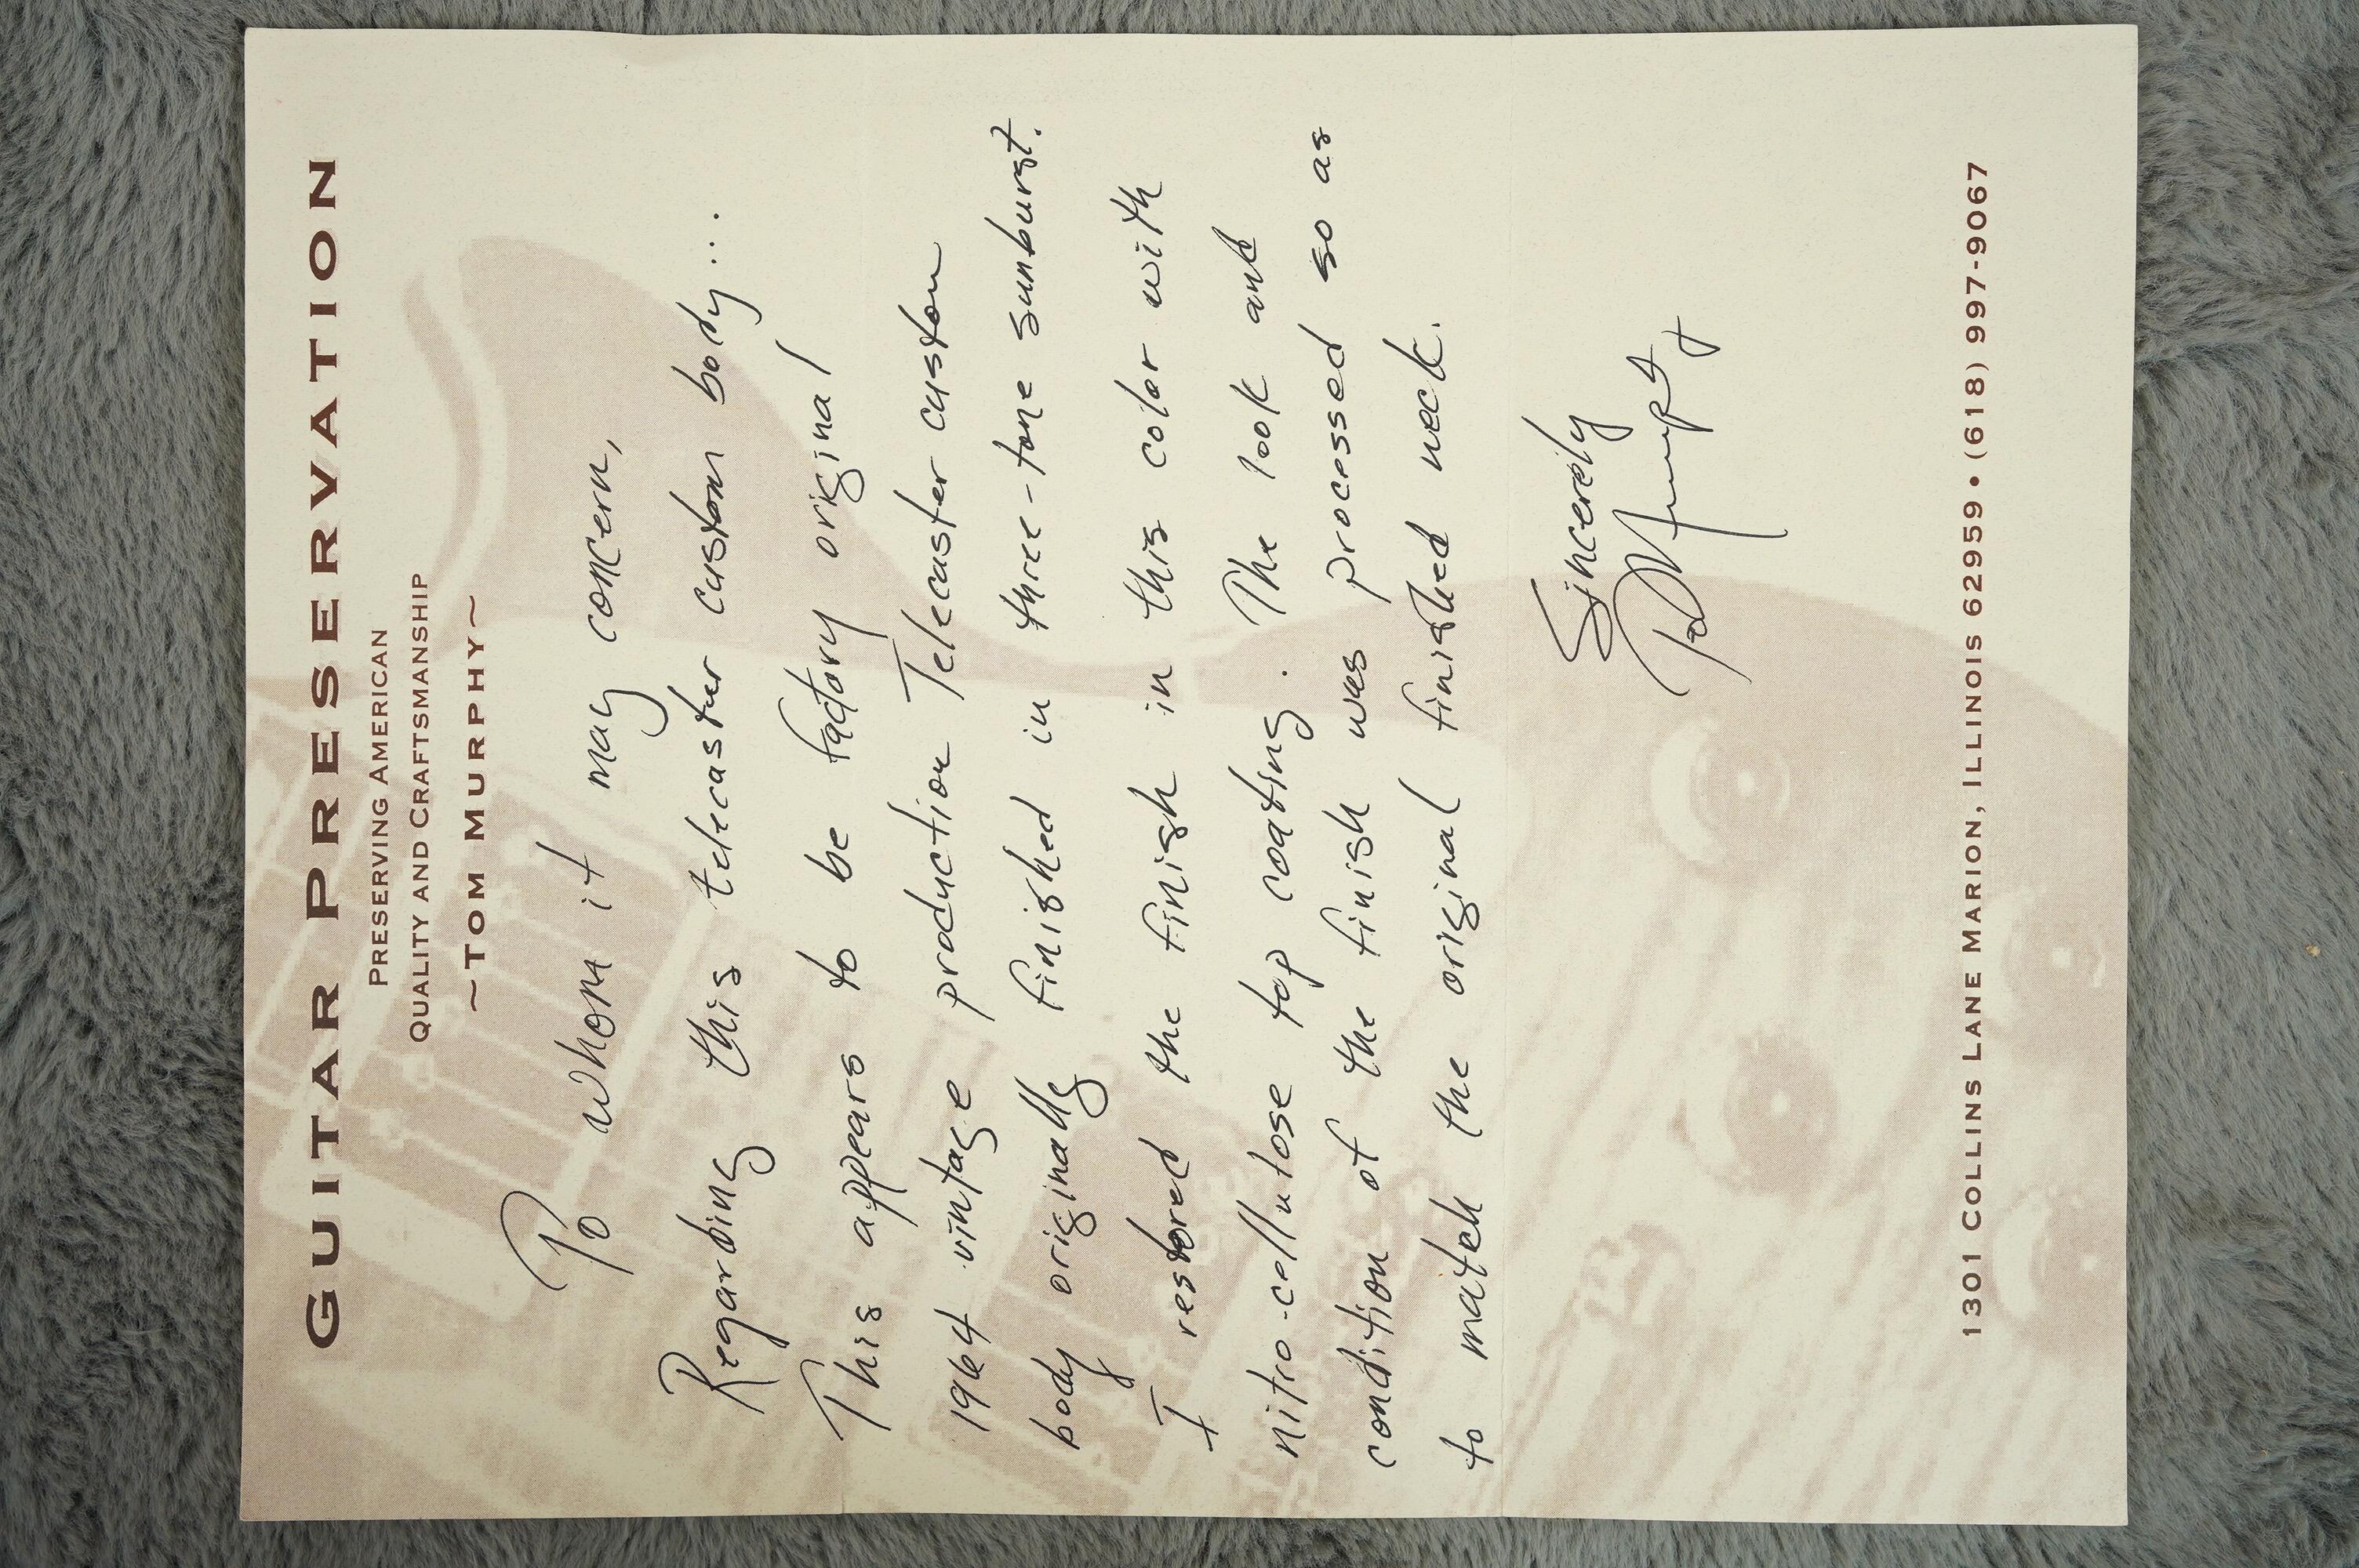 GUITAR PRESERVATION
PRESERVING AMERICAN
QUALITY AND CRAFTSMANSHIP
~TOM MURPHY~
To whom it may concern,
Regarding this telecaster custom body....
This appears to be factory original
1964 vintage production Telecaster custom
body originally finished in three-tone sunburst.
I restored the finish in this color with
nitro-cellulose top coating. The look and
condition of the finish was processed so as
to match the original finished neck.
Sincerely
Tom Murphy
1301 COLLINS LANE MARION, ILLINOIS 62959 • (618) 997-9067